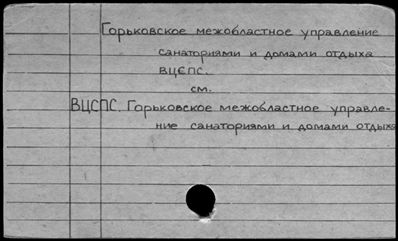 Горьковское межобластное управление
санаториями и домами отдыха
ВЦСПС.
см.
ВЦСПС. Горьковское межобластное управле-
ние санаториями и домами отдыха